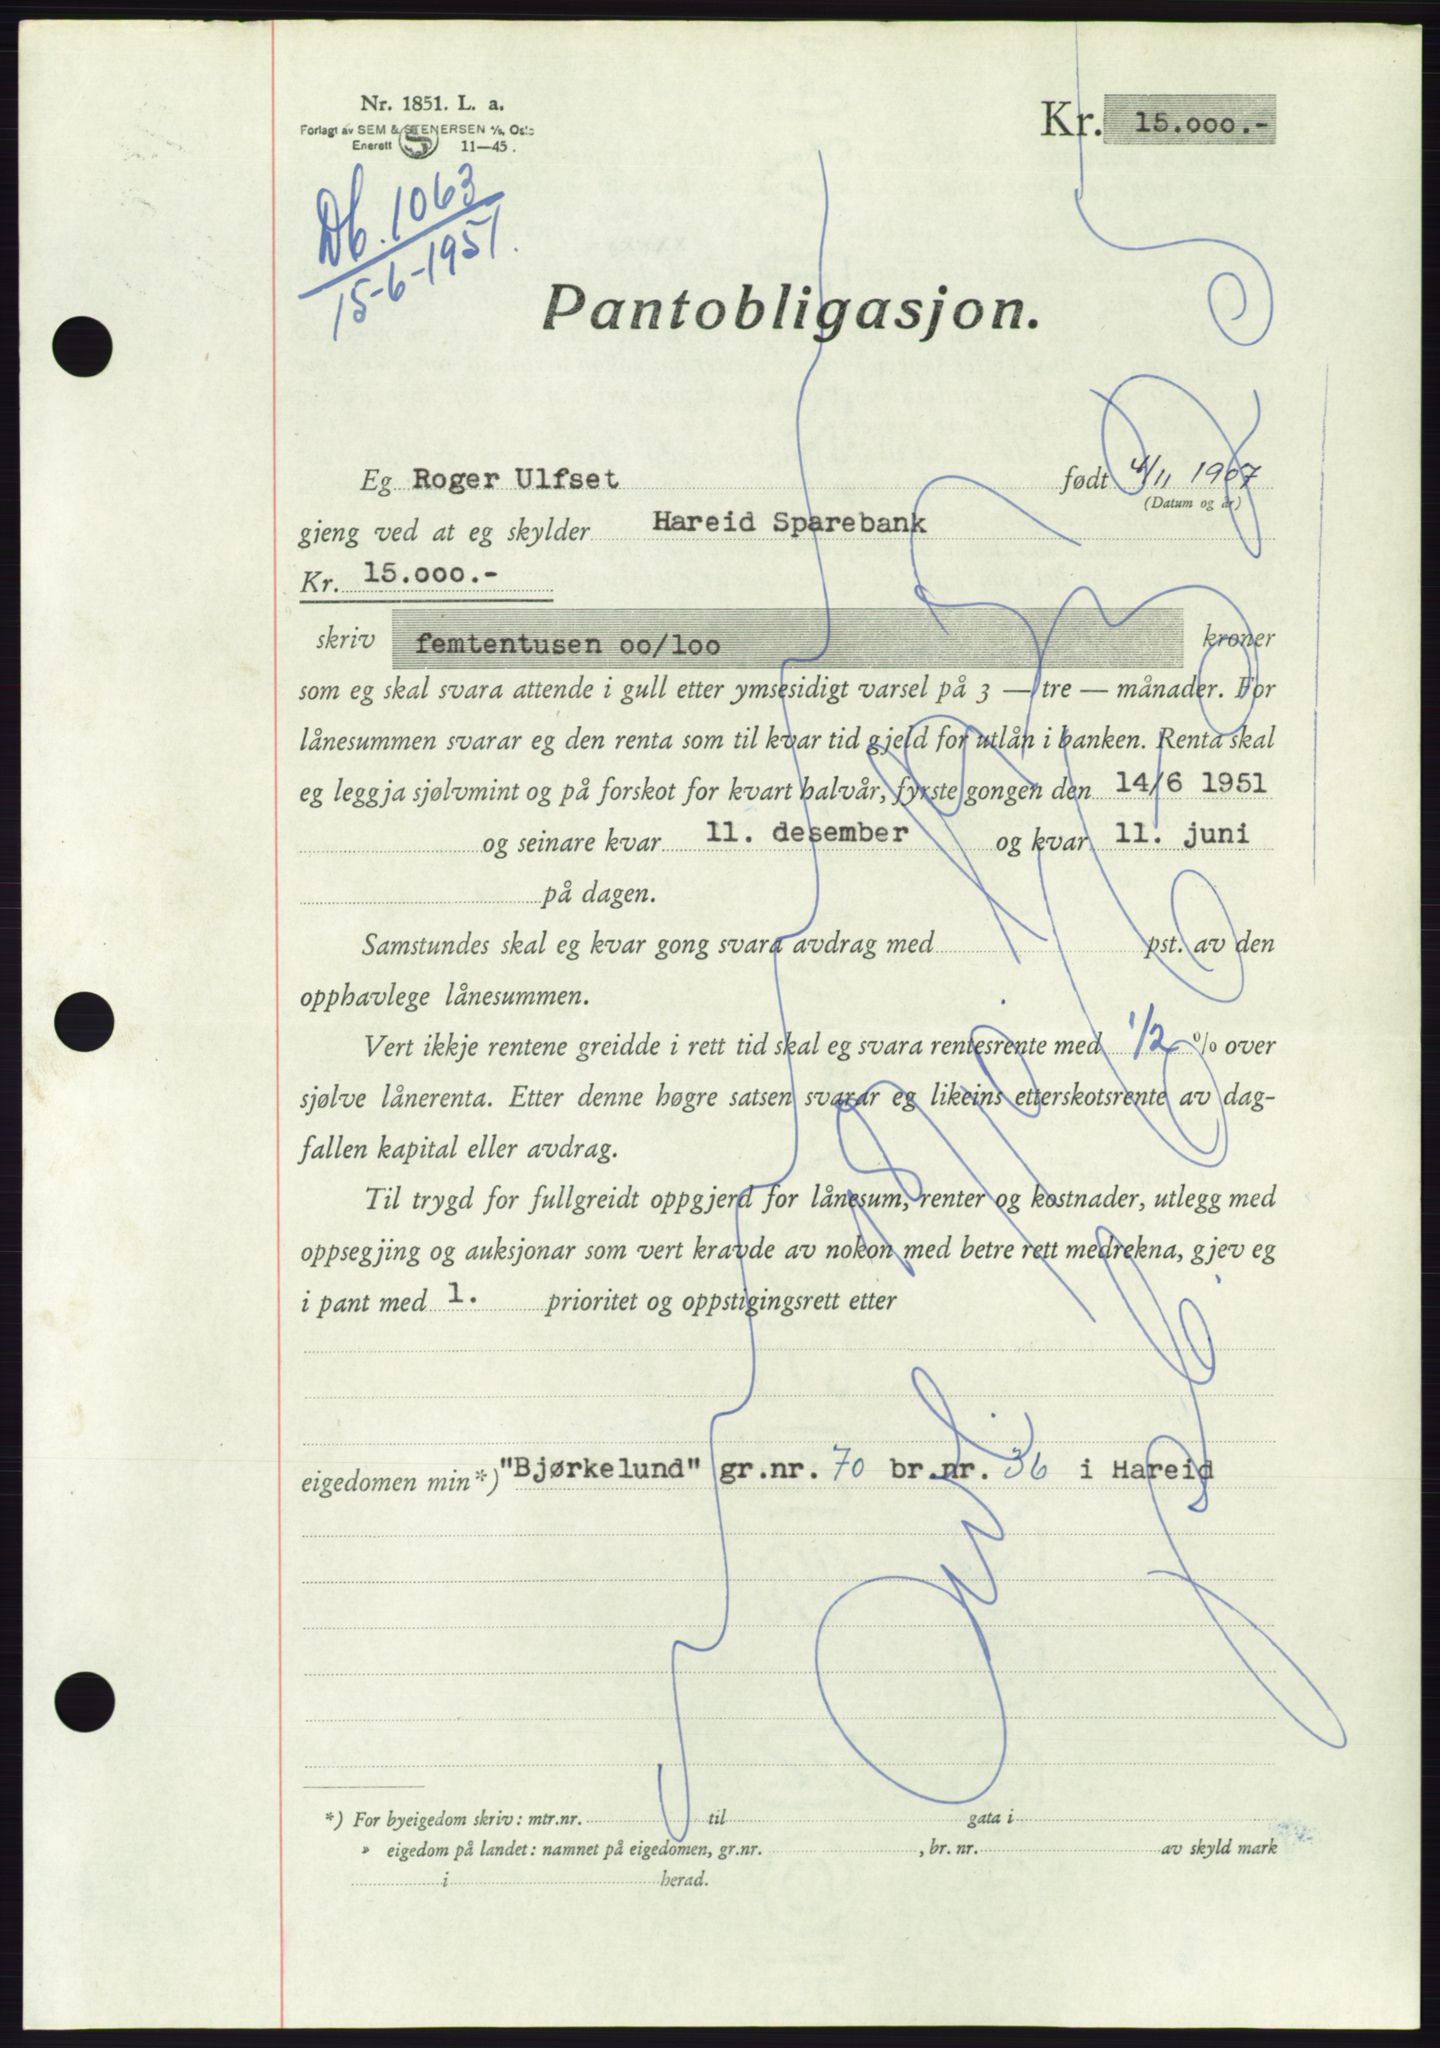 Nr. 1851. L. a.
Forlagt av SEM & STENERSEN A/S, Oslo
Enerett 11—45.
Kr. 15.000.-
Db. 1063
15-6-1951.
Pantobligasjon.
Eg Roger Ulfset født 4/11 1907
(Datum og år)
gjeng ved at eg skylder Hareid Sparebank
Kr. 15.000.-
skriv femtentusen oo/loo kroner
som eg skal svara attende i gull etter ymsesidigt varsel på 3 — tre — månader. For
lånesummen svarar eg den renta som til kvar tid gjeld for utlån i banken. Renta skal
eg leggja sjølvmint og på forskot for kvart halvår, fyrste gongen den 14/6 1951
og seinare kvar 11. desember og kvar 11. juni
på dagen.
Samstundes skal eg kvar gong svara avdrag med pst. av den
opphavlege lånesummen.
Vert ikkje rentene greidde i rett tid skal eg svara rentesrente med 1/2 % over
sjølve lånerenta. Etter denne høgre satsen svarar eg likeins etterskotsrente av dag-
fallen kapital eller avdrag.
Til trygd for fullgreidt oppgjerd for lånesum, renter og kostnader, utlegg med
oppsegjing og auksjonar som vert kravde av nokon med betre rett medrekna, gjev eg
i pant med 1. prioritet og oppstigingsrett etter
eigedomen min*) "Bjørkelund" gr.nr. 70 br.nr. 36 i Hareid
*) For byeigedom skriv: mtr.nr. til gata i
» eigedom på landet: namnet på eigedomen, gr.nr. , br. nr. av skyld mark
i herad.